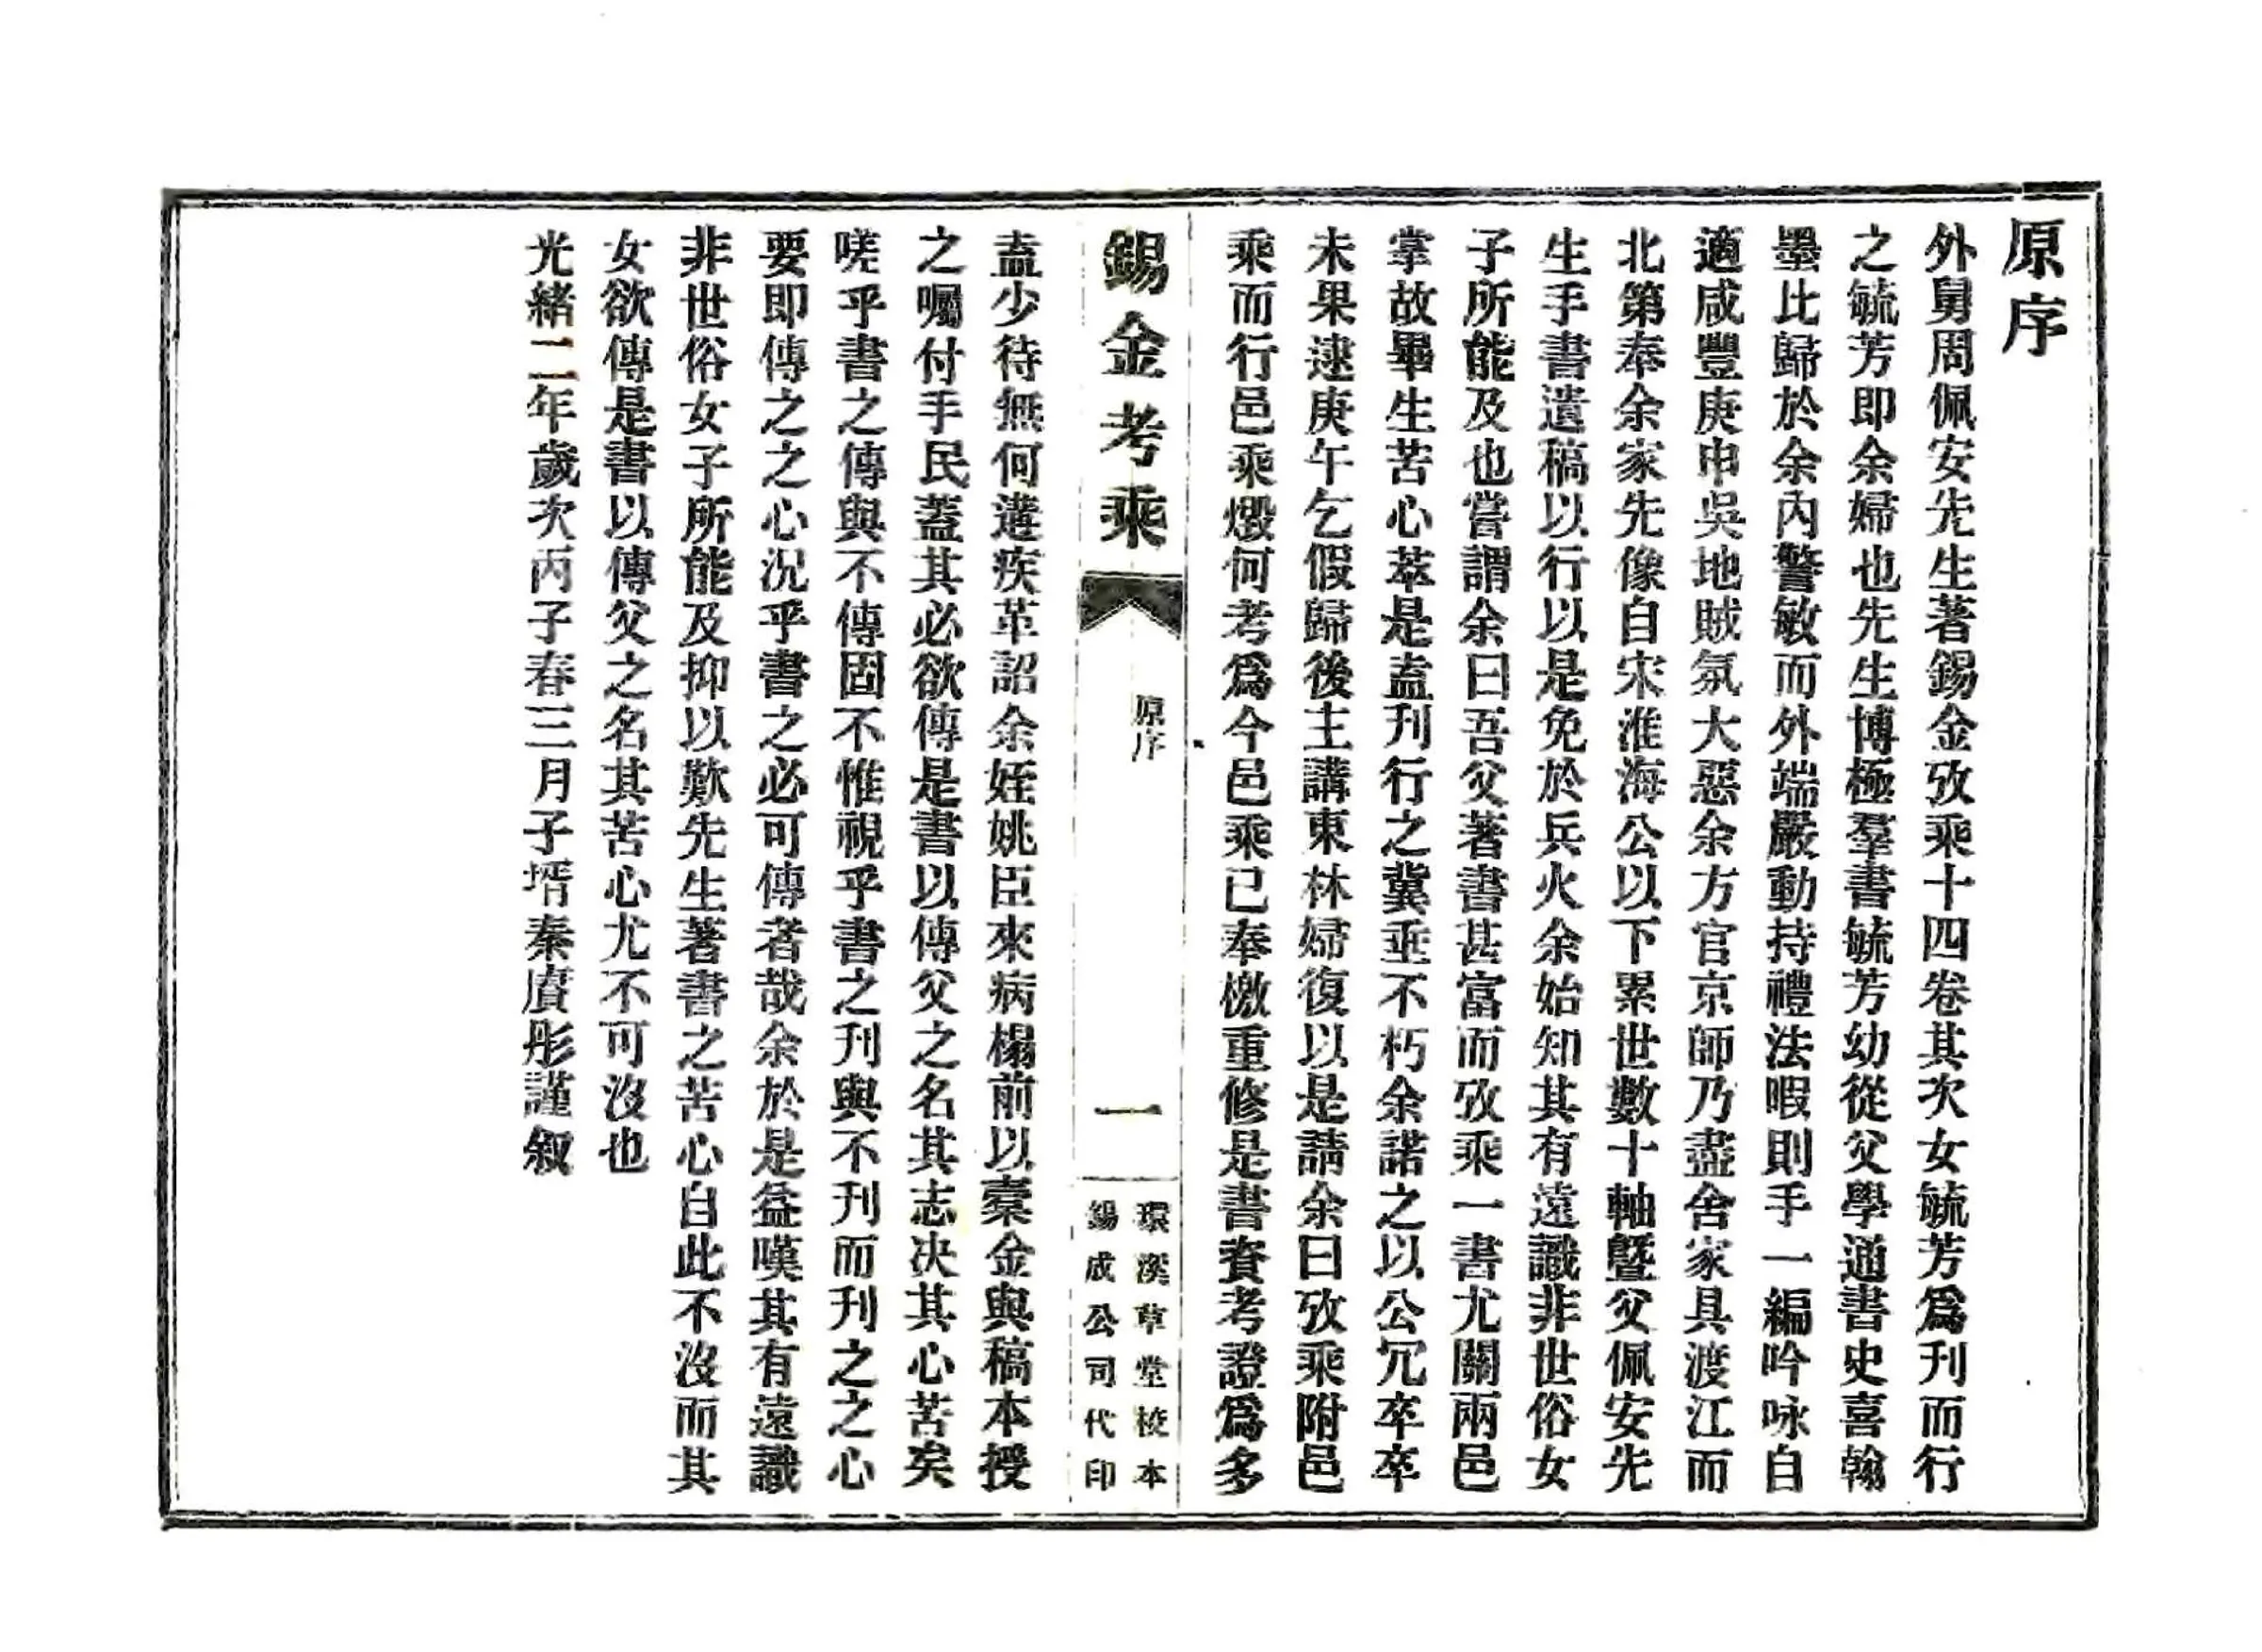 原序
外舅周佩安先生著錫金攷乘十四卷其次女毓芳爲刊而行
之毓芳即余婦也先生博極羣書毓芳幼從父學通書史喜翰
墨比歸於余內警敏而外端嚴動持禮法暇則手一編吟咏自
適咸豐庚申吳地賊氛大惡余方官京師乃盡舍家具渡江而
北第奉余家先像自宋淮海公以下累世數十軸曁父佩安先
生手書遺稿以行以是免於兵火余始知其有遠識非世俗女
子所能及也嘗謂余曰吾父著書甚富而攷乘一書尤關兩邑
掌故畢生苦心萃是盍刊行之冀垂不朽余諾之以公冗卒卒
未果逮庚午乞假歸後主講東林婦復以是請余曰攷乘附邑
乘而行邑乘燬何考爲今邑乘已奉檄重修是書資考證爲多
錫金考乘
原序
一
環溪草堂校本
錫成公司代印
盍少待無何遘疾革詔余姪姚臣來病榻前以橐金與稿本授
之囑付手民蓋其必欲傳是書以傳父之名其志决其心苦矣
嗟乎書之傳與不傳固不惟視乎書之刊與不刊而刊之之心
要即傳之之心況乎書之必可傳者哉余於是益嘆其有遠識
非世俗女子所能及抑以歎先生著書之苦心自此不沒而其
女欲傳是書以傳父之名其苦心尤不可沒也
光緒二年歲次丙子春三月子壻秦賡彤謹叙